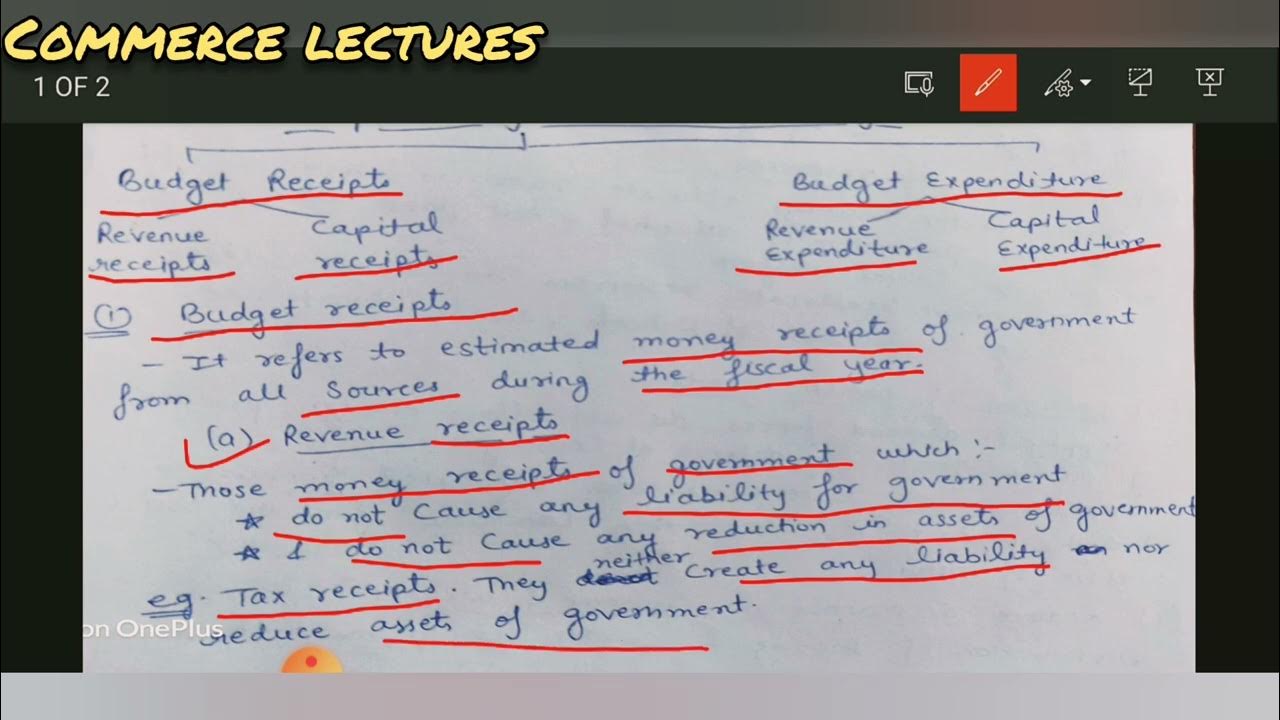 COMMERCE LECTURES
1 OF 2
Budget Receipts
Budget Expenditure
Revenue receipts
Capital receipts
Revenue Expenditure
Capital Expenditure
(1) Budget receipts
- It refers to estimated money receipts of government
from all sources during the fiscal year.
(a) Revenue receipts
- Those money receipts of government which :-
☆ do not cause any liability for government
☆ & do not cause any reduction in assets of government
eg. Tax receipts. They neither create any liability nor
reduce assets of government.
on OnePlus